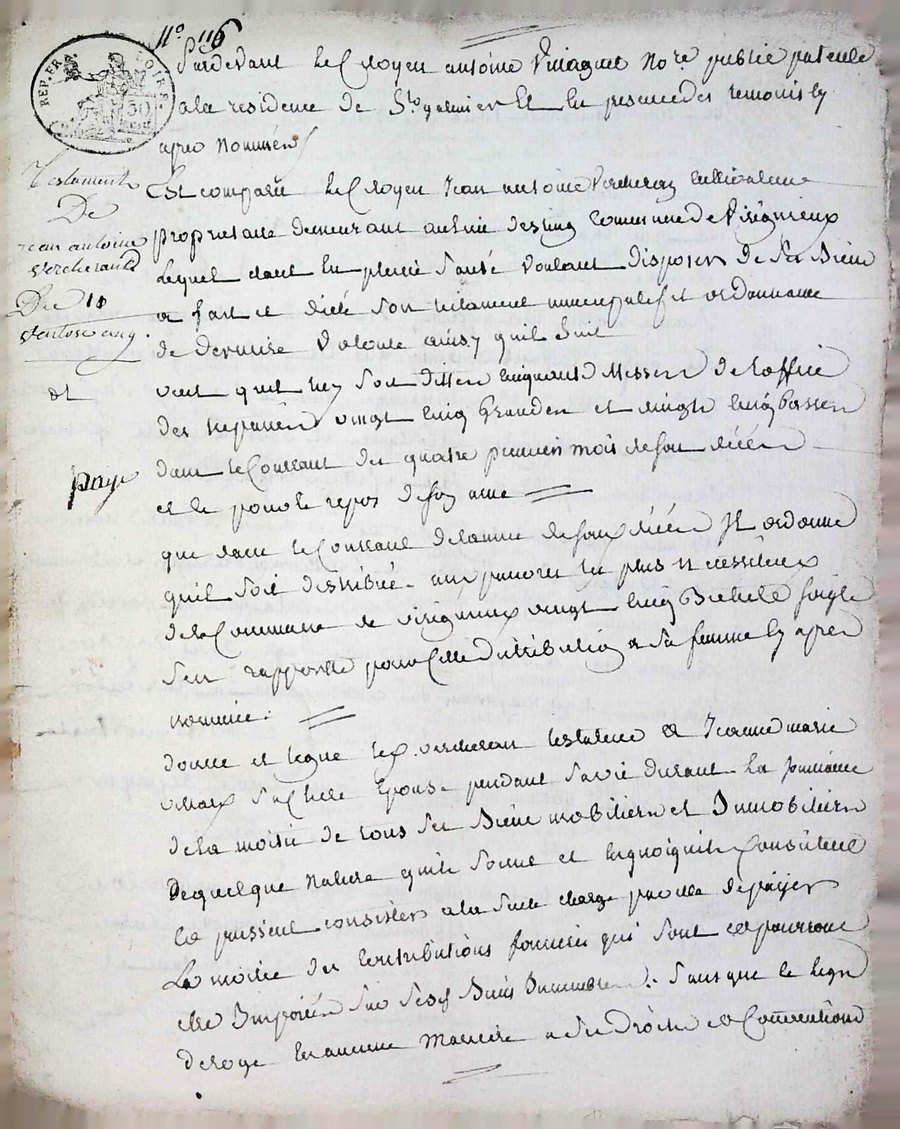 N.º 116
REP. FR.
50
Pardevant le Citoyen antoine no.re public patenté
a la residence de St. galmier et en presence des temoins cy
apres nommés
Testament
De
jean antoine
vercherand
Du 10
ventose cinq.
et
paye
Est comparu le Citoyen Jean antoine vercherand cultivateur
proprietaire demeurant au lieu commune de virignieux
lequel etant en pleine santé voulant disposer de ses Biens
a fait et dicté son testament nuncupatif et ordonnance
de derniere volonté ainsy quil suit
veut quil luy soit dit en Messes de loffice
des trepassés vingt cinq Grandes et vingt cinq basses
dans le Courrant des quatre premiers mois de son décés
et le pour le repos de son ame
que dans le Courrant de lannée de son décés Il ordonne
quil soit distribué aux pauvres les plus necessiteux
de la Commune de virignieux vingt cinq Bichets seigle
sen rapporte pour cette distribution a sa femme cy apres
nommée.
donne et legue led. vercherand testateur a Jeanne marie
sa chere Epouse pendant sa vie durant la jouissance
de la moitié de tous ses Biens mobiliers et Immobiliers
de quelque nature quils soient et en quoi quils Consistent
et puissent consister a la seule charge par elle de payer
La moitié des Contributions foncieres qui sont et pourront
etre Imposées sur sesd. Biens Immeubles. sans que ce legs
deroge en aucune maniere a ses Droits et Conventions